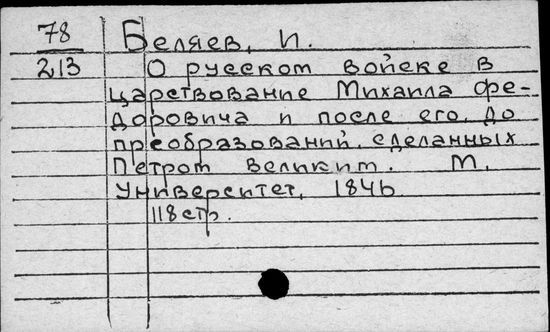 78 Беляев, И.
213 О русском войске в
царствование Михаила Фе-
доровича и после его, до
преобразований, сделанных
Петром великим. М.
Университет, 1846
118 стр.